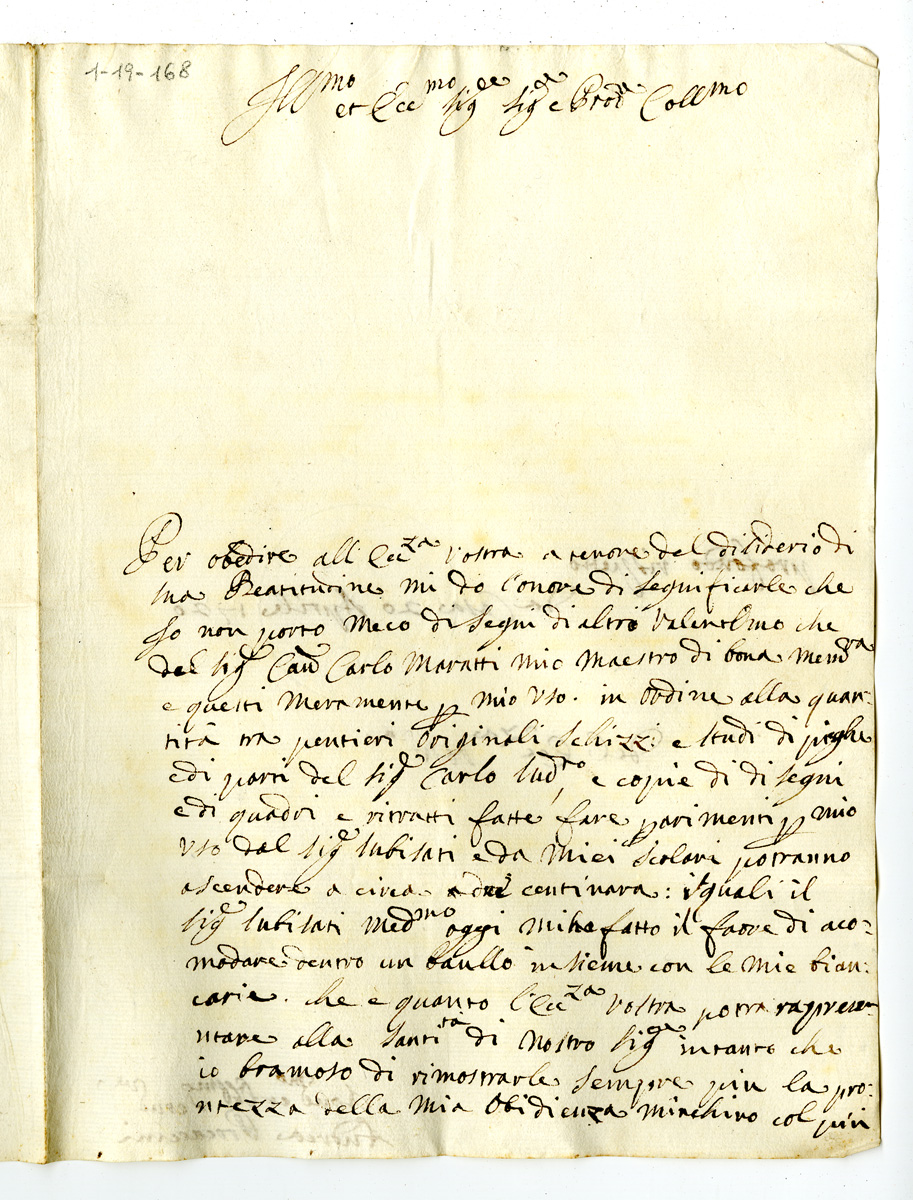 1-19-168
Ill.mo et Ecc.mo Sig.re Sig.re e Prone Coll.mo
Per obedire all'Ecc.za Vostra a tenore del disiderio di
sua Beatitudine mi do l'onore di segnificarle che
Io non porto meco disegni di altro Valentomo che
del Sig.r Cav. Carlo Maratti mio Maestro di bona mem.ra
e questi meramente p mio uso. in ordine alla quan:
tità tra pentieri Originali schizzi e studi di pieghe
e di parti del Sig.r Carlo sud.to, e copie di disegni
e di quadri e ritratti fatte fare parimenti p mio
uso dal Sig.r Subisati e da miei Scolari potranno
ascendere a circa a due centinara: i quali il
Sig.r Subisati med.mo oggi mi ha fatto il favore di aco:
modare dentro un baullo insieme con le mie bian:
carie. che è quanto l'Ecc.za Vostra potrà rapprese:
ntare alla Santi.tà di Nostro Sig.re intanto che
io bramoso di rimostrarle sempre più la pro:
ntezza della mia Obidienza m'inchino col più